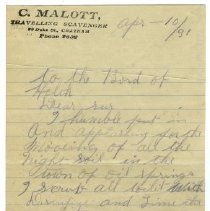 C. MALOTT,
TRAVELLING SCAVENGER
89 Duke St., CHATHAM
Phone
Apr - 10/31
to the Bord of
Helth
Dear sur
I humble put in
And applacing for the
Mooveing of all the
night Soil in the
town of oil springs
I scrub all toilet
Disinfect and Lime the